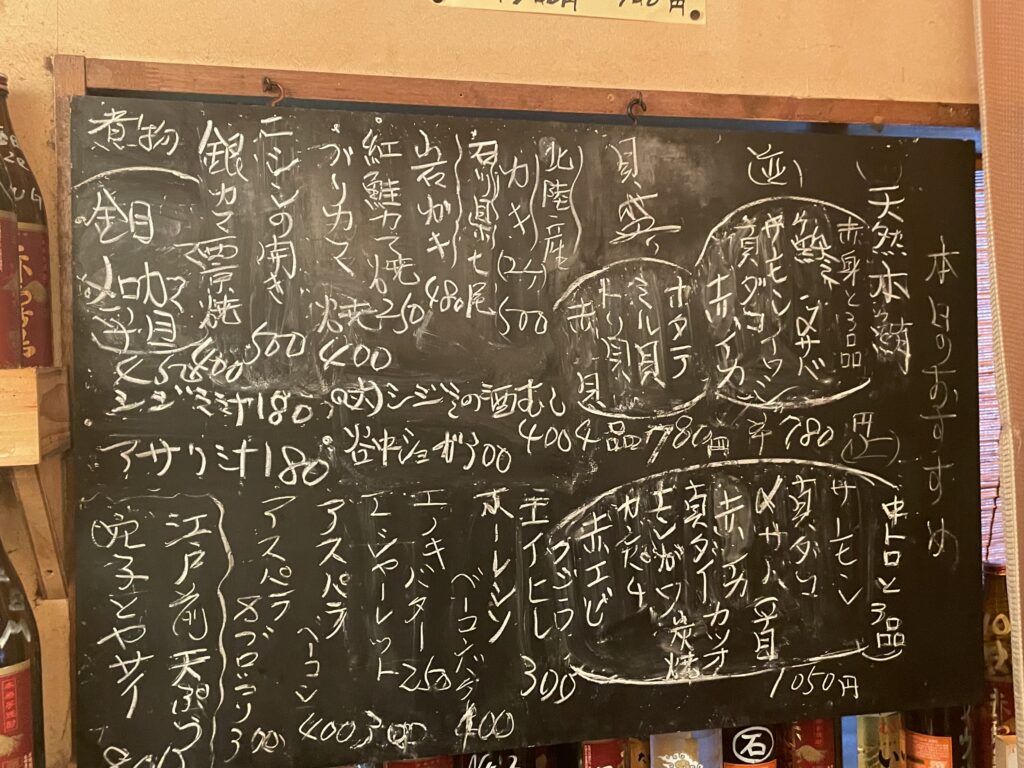 本日のおすすめ
天然本鮪
赤身と3品
〆サバ
サーモン
真ダコ
赤イカ
(並)
780円
中トロと3品
サーモン
真ダコ
〆サバ
赤イカ
カツオ
真ダイ
赤エビ
1050円
貝盛り
ホタテ
ミル貝
トリ貝
赤貝
4品780円
北陸産
カキ(2ケ)500
石川県七尾
岩がキ480
紅鮭カマ焼250
ブリカマ焼400
ニシンの開き500
銀カマ西京焼400
煮物
金目
メロカマ
450
(大)シジミの酒むし400
谷中ショーガ300
シジミ汁180
アサリ汁180
エイヒレ300
ホーレンソウ
ベーコンバター
400
エノキバター250
エシャーレット300
アスパラ
ベーコン
400
アスパラ
300
江戸前天ぷら
穴子とヤサイ
石